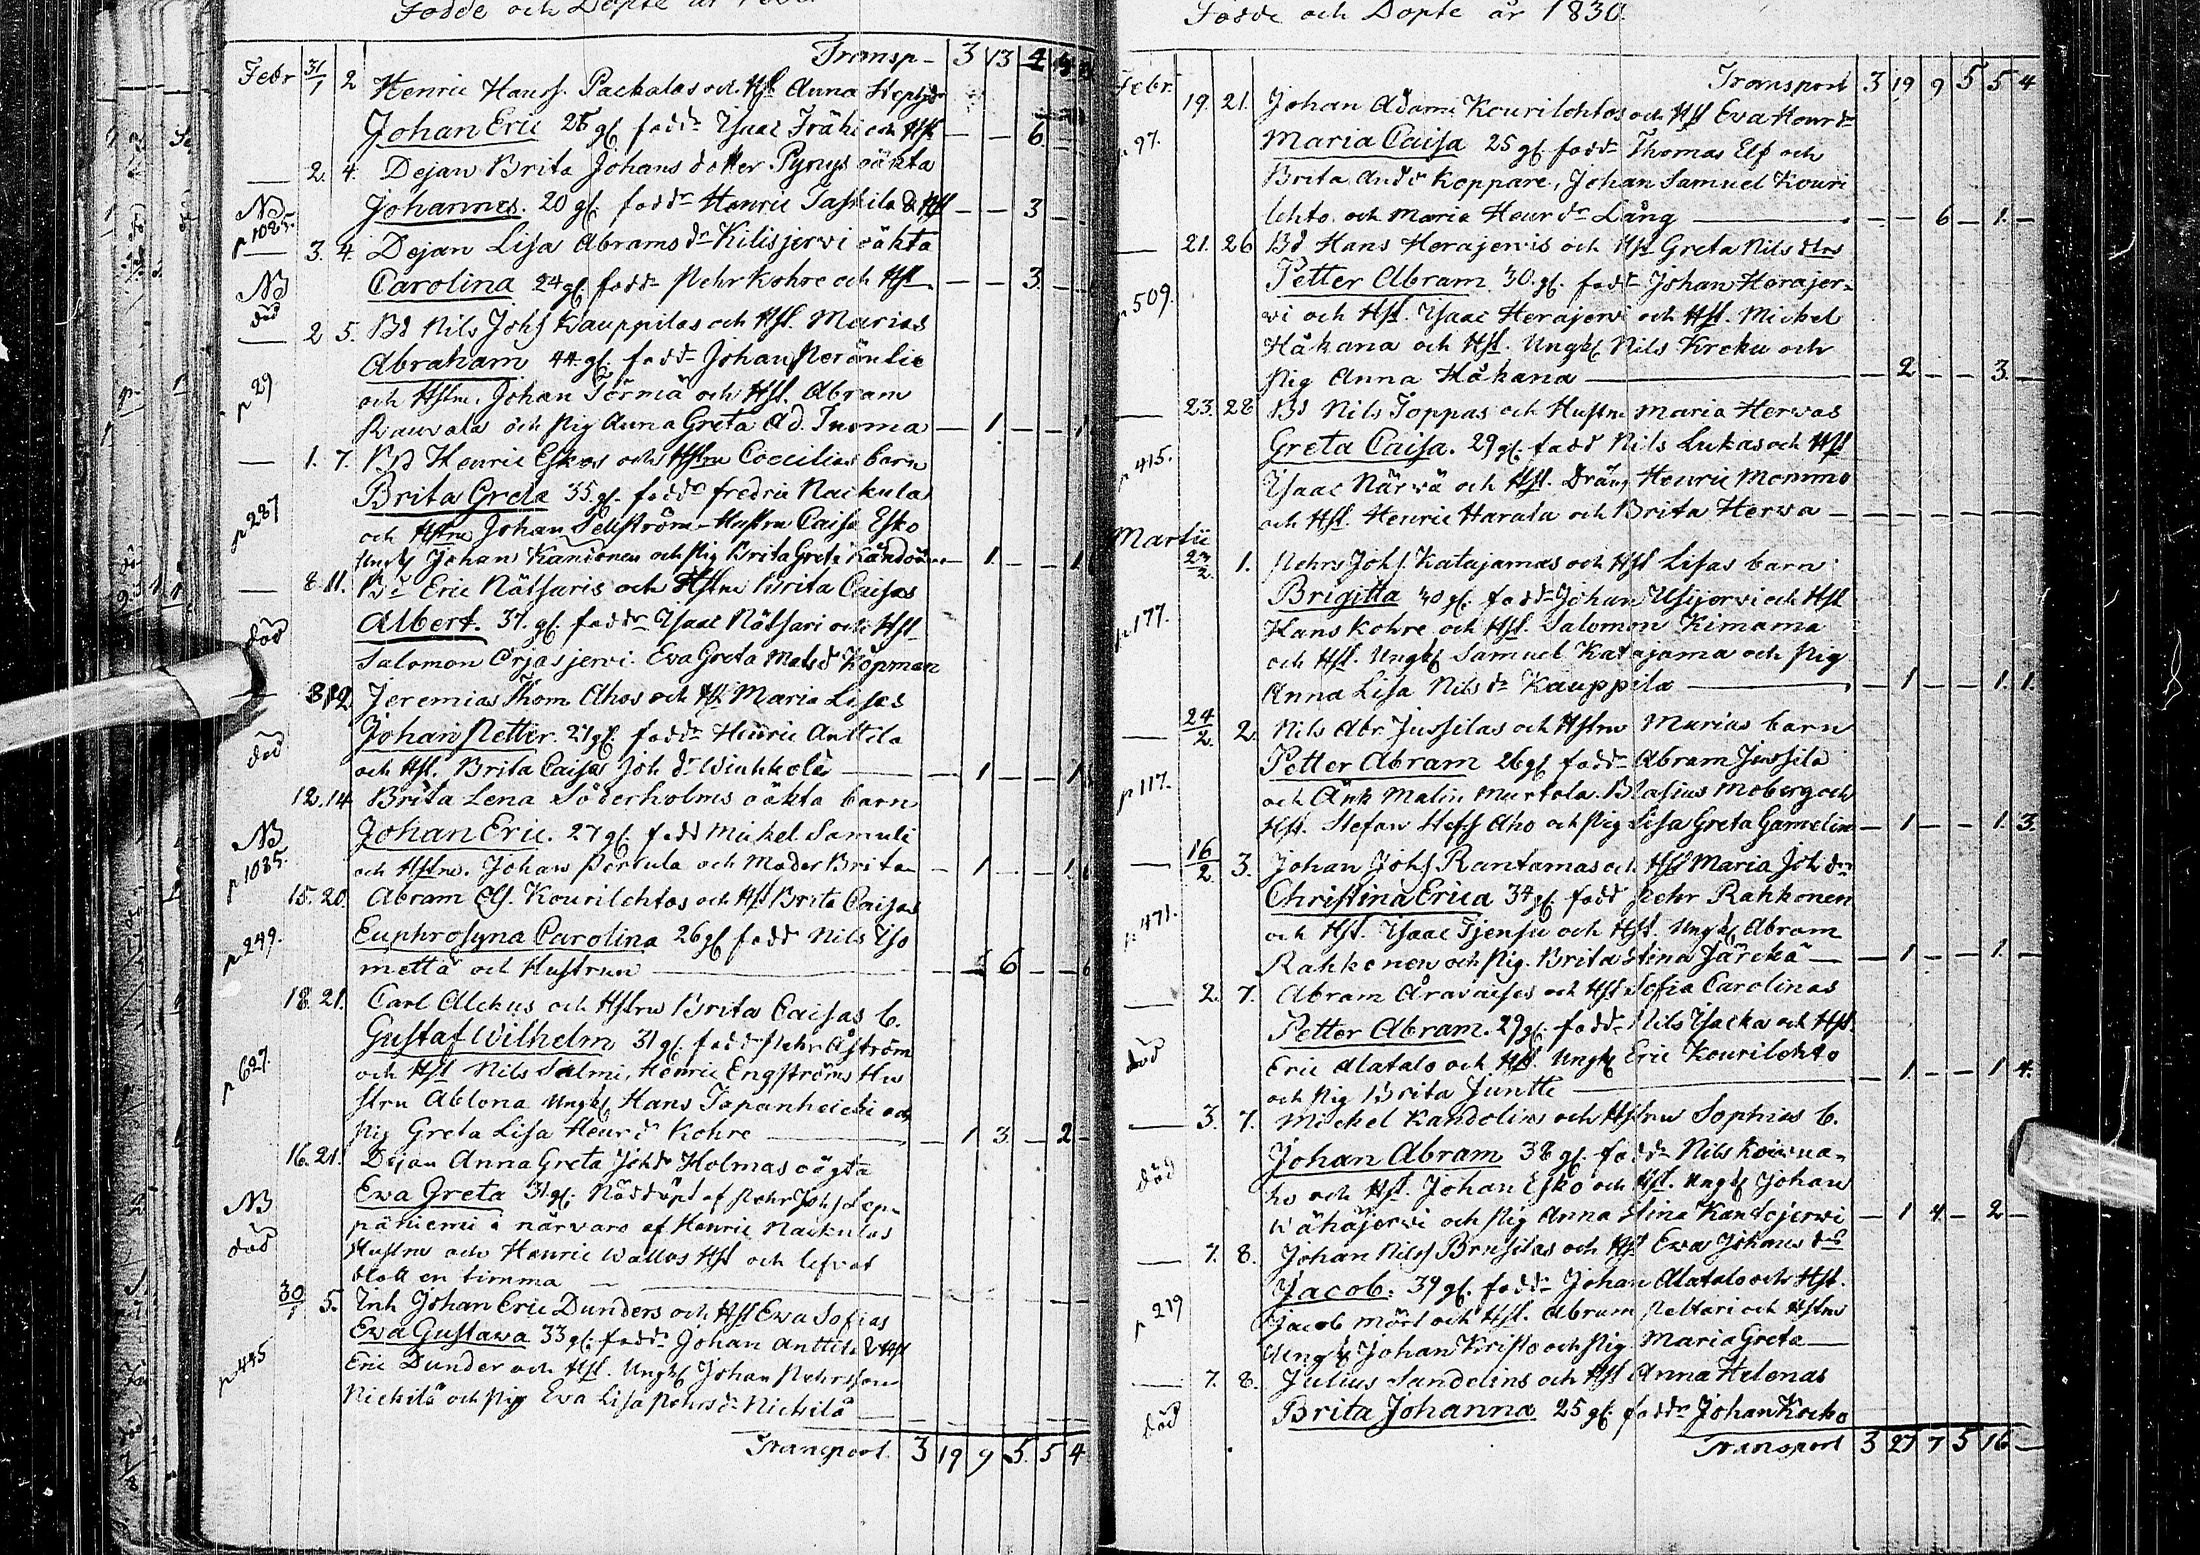 Födde och Döpte år
Transp- 3 13 4
Febr 31/1 2 Henric Hansς. Paekalas och Hst Anna
Johan Eric 28 gς fadd. Isaac Träki och Hst — — 6
2. 4. Dejan Brita Johans dotter Pynys oäkta
NB p 1025. Johannes. 20 gς. fadd. Henric Taskila & Hst — — 3 —
3. 4. Dejan Lisa Abrams dr Kilisjerwi oäkta
NB död Carolina 24 gς. fadd. Pehr Kohre och Hst — — 3. —
2 5. Bd Nils Johς Kauppilas och Hst. Marias
Abraham 44 gς. fadd. Johan
p 29 och Hstru. Johan Törmä och Hst. Abram
Rauvala och Pig Anna Greta Ad. Tuoma — 1. — — 1
1. 7. Henric Eskos och Hstru Coecilias barn
Brita Greta 35 gς. fadd. Fredric Naikula
p 287 och Hstru Johan Sellström Hustru Caisa Esko
Ungkς Johan och Pig Brita Greta — 1 — — 1
8. 11. Bd Eric Nätsaris och Hstru Brita Caisas
död Albert. 37. gς. fadd. Isaac Nätsari och Hst
Salomon Orjasjerwi. Eva Greta Mats d Köpman
8 12. Jeremias Thom Ahos och Hst Maria Lisas
Johan Petter. 27 gς. fadd. Henric Anttila
död och Hst. Brita Caisa Joh dr — 1 — — 1
12. 14 Brita Lena Söderholms oäkta barn
NB Johan Eric. 27 gς. fadd Mickel Samuli
p 1035. och Hstru. Johan Perttula och Moder Brita — 1 — — 1
15. 20. Abram Kourilehtos och Hst Brita Caisas
p 249. Euphrosyna Carolina 26 gς fadd Nils Iso
metta och Hustrun — 6 — — 6
18. 21. Carl Alchus och Hstru Brita Caisas b.
Gustaf Wilhelm 31 gς. fadd Pehr Åström
p 627. och Hst Nils Salmi, Henric Engströms Hu
stru Ablona Ungkς Hans Tapanheicki och
Pig Greta Lisa Henr dr Kohre — 1. 3. — 2 —
16. 21. Dejan Anna Greta Johdr Holmas oägta
NB Ewa Greta 31 gς. Nöddöpt af Pehr Johς Lep-
päniemi i närvaro af Henric Naikulas
död Hustru och Henric Wallos Hst och lefvat
blott en timma — —
30/1 5. Inh Johan Eric Dunders och Hst Ewa Sofias
Ewa Gustava 33 gς. fadd. Johan Anttila & Hst
p 445 Eric Dunder och Hst. Ungkς Johan Pehrsson
Nickilä och Pig Eva Lisa Pehrs dr Nickilä
Transport. 3 19 9 5. 5 4
Födde och Döpte år 1830.
Transport 3 19 9 5 5 4
Febr. 19. 21. Johan Adams Kourilehtos och Hst Eva Henr dr
p 97. Maria Caisa 25 gς. fadd. Thomas Elf och
Brita And dr Koppare, Johan Samuel Kouri
lehto. och Maria Henr dr Lång — — 6 — 1. —
21. 26 Bd Hans Herajerwis och Hst Greta Nils dtrs
Petter Abram 30. gς. fadd. Johan Herajer-
p 509. wi och Hst. Isaac Herajerwi och Hst. Mickel
Håkana och Hst. Ungkς Nils Kreku och
Pig Anna Håkana — 2 — — 3. —
23. 28 Bd Nils Toppas och Hustru Maria Herwas
Greta Caisa. 29 gς. fadd Nils Lukas och Hst
p 415. Isaac Närwä och Hst. Dräng Henric Mommo
och Hst. Henric Harala och Brita Herwa — — — — —
Martii
23/2 1. Pehrs Johς. Katajamas och Hst Lisas barn
Brigitta 30 gς. fadd. Johan Usijerwi och Hst
p 177. Hans Kohre och Hst. Salomon Kimama
och Hst. Ungkς Samuel Katajama och Pig
Anna Lisa Nils dr Kauppila — 1 — — 1. 1.
24/2 2. Nils Abr. Jussilas och Hstru Marias barn
Petter Abram 26 gς fadd. Abram Jussila
p 117. och Änk Malin Murtola. Blasius Moberg och
Hst. Stefan Stefς Aho och Pig Lisa Greta Gamelin — 1 — — 1. 3.
16/2 3. Johan Johς Rantamas och Hst Maria Joh dr
Christina Erica 34 gς fadd Pehr Rahkonen
p 471. och Hst. Isaac och Hst. Ungkς Abram
Rahkonen och Pig. Brita Stina — 1 — — 1. —
2. 7. Abram Aravaises och Hst Sofia Carolinas
Petter Abram. 29 gς. fadd. Nils Isacka och Hst
död Eric Alatalo och Hst. Ungkς Eric Kourilehto
och Pig Brita Juntti — 1. — — 1 4.
3. 7. Mickel Kandelins och Hstru Sophias b.
Johan Abram 38 gς. fadd. Nils Koiwua-
död ho och Hst. Johan Esko och Hst. Ungkς Johan
Wähäjerwi och Pig Anna Stina Kandojerwi — 1 4 — 2 —
7. 8. Johan Nilsς Brusilas och Hst Ewa Johans dr
Jacob. 39 gς. fadd. Johan Alatalo och Hst.
p 219 Jacob Mört och Hst. Abram Peltari och Hstru
Ungkς Johan Kristo och Pig Maria Greta —
7. 8. Julius Sandelins och Hst Anna Helenas
död Brita Johanna 25 gς. fadd. Johan Kocko
Transport 3 27 7 5 16 —